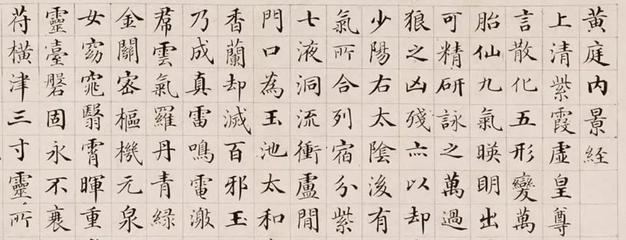 黃庭內景經
上清紫霞虛皇尊
言散化五形變萬
胎仙九氣暎明出
可精研詠之萬過
狼之凶殘亦以却
少陽右太陰後有
氣所合列宿分紫
七液洞流衝盧間
門口為玉池太和
香蘭却滅百邪玉
乃成真雷鳴電激
帬雲氣羅丹青綠
金關密樞機元泉
女窈窕翳霄暉重
靈臺磐固永不衰
苻橫津三寸靈所